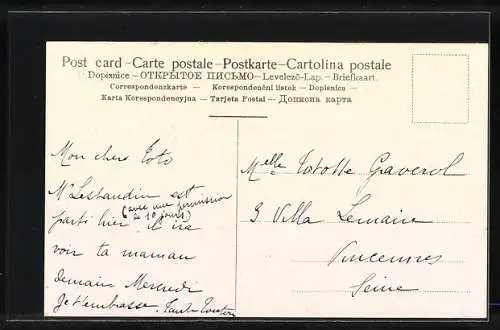 Post card – Carte postale – Postkarte – Cartolina postale
Dopisnice – ОТКРЫТОЕ ПИСЬМО – Levelező-Lap. – Briefkaart.
Correspondenzkarte – Korespondenční listek – Dopisnico –
Karta Korespondencyjna – Tarjeta Postal – Дописна карта
Mon cher Toto
Mr Lestaudin est
(avec une permission
de 10 jours)
parti hier il ira
voir ta maman
demain Mercredi
Je t'embrasse. Tante
Melle Totote Gaverol
9 Villa Lemaire
Vincennes
Seine